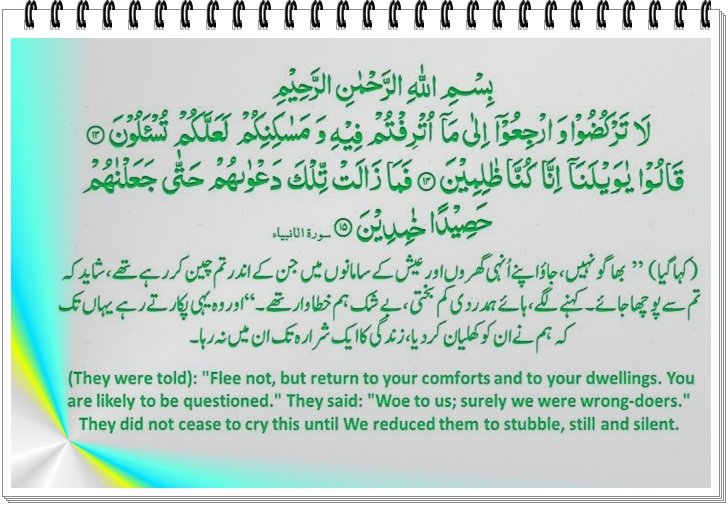 بِسْمِ اللهِ الرَّحْمٰنِ الرَّحِيْمِ
لَا تَرْكُضُوْا وَارْجِعُوْٓا اِلٰى مَآ اُتْرِفْتُمْ فِيْهِ وَ مَسٰكِنِكُمْ لَعَلَّكُمْ تُسْـَٔلُوْنَ ۝۱۳
قَالُوْا يٰوَيْلَنَآ اِنَّا كُنَّا ظٰلِمِيْنَ ۝۱۴ فَمَا زَالَتْ تِّلْكَ دَعْوٰىهُمْ حَتّٰى جَعَلْنٰهُمْ
حَصِيْدًا خٰمِدِيْنَ ۝۱۵ سورة الانبیاء
(کہا گیا) ”بھاگو نہیں، جاؤ اپنے اُنہی گھروں اور عیش کے سامانوں میں جن کے اندر تم چین کر رہے تھے، شاید کہ
تم سے پوچھا جائے۔ کہنے لگے، ہائے ہمدردی کم بختی، بے شک ہم خطاوار تھے۔“ اور وہ یہی پکارتے رہے یہاں تک
کہ ہم نے ان کو کھلیان کر دیا، زندگی کا ایک شرارہ تک ان میں نہ رہا۔
(They were told): "Flee not, but return to your comforts and to your dwellings. You
are likely to be questioned." They said: "Woe to us; surely we were wrong-doers."
They did not cease to cry this until We reduced them to stubble, still and silent.